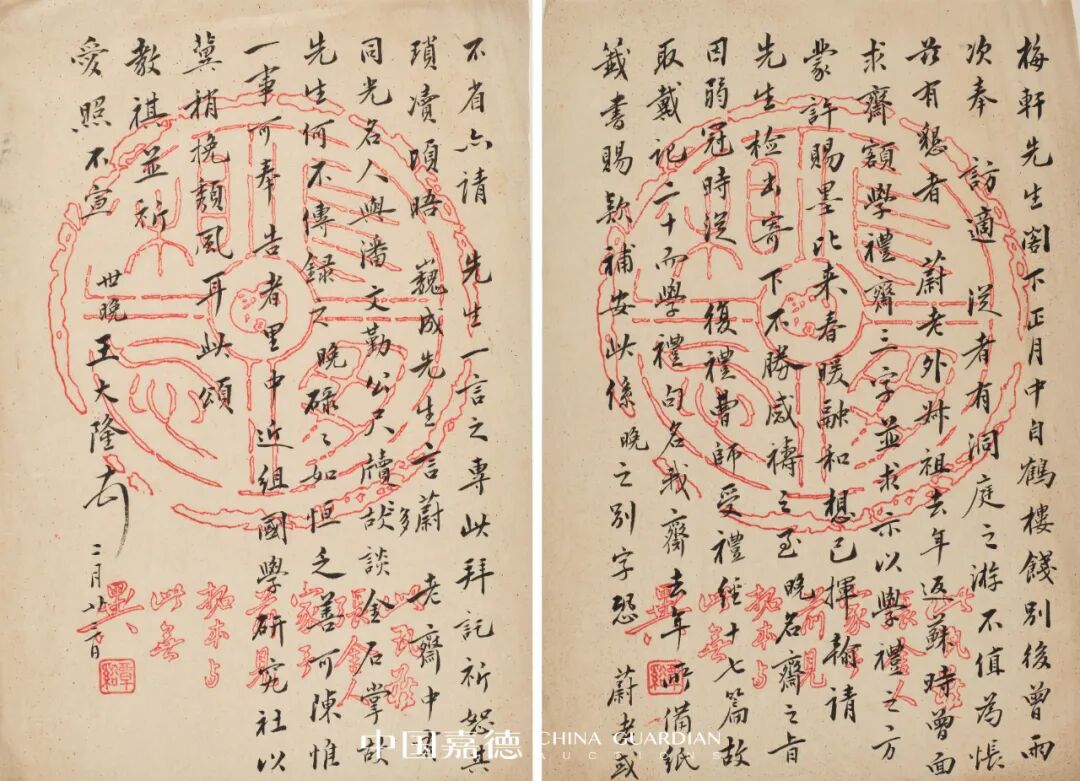 梅軒先生閣下正月中自鶴樓餞別後曾兩
次奉 訪適 從者有洞庭之游不值為悵
茲有懇者 蔚老外姊祖去年返蘇時曾面
求齋額學禮齋三字並求示以學禮之方
蒙許賜墨比來春暖融和想已揮翰請
先生檢出寄下不勝感禱之至晚名齋之旨
因弱冠時從 復禮曹師受禮經十七篇故
取戴記二十而學禮句名我齋去年所備紙
籤書賜款補安此係晚之別字恐 蔚老或
不省亦請 先生一言之專此拜託祈恕其
瑣瀆頃晤 巍成先生言蔚老齋中有
同光名人與潘文勤公尺牘多談金石掌故
先生何不傳錄之晚碌々如恒乏善可陳惟
一事可奉告者里中近組國學研究社以
冀稍挽頹風耳此頌
教祺並祈
愛照不宣
世晚王大隆
二月
中国嘉德 CHINA GUARDIAN
AUCTIONS